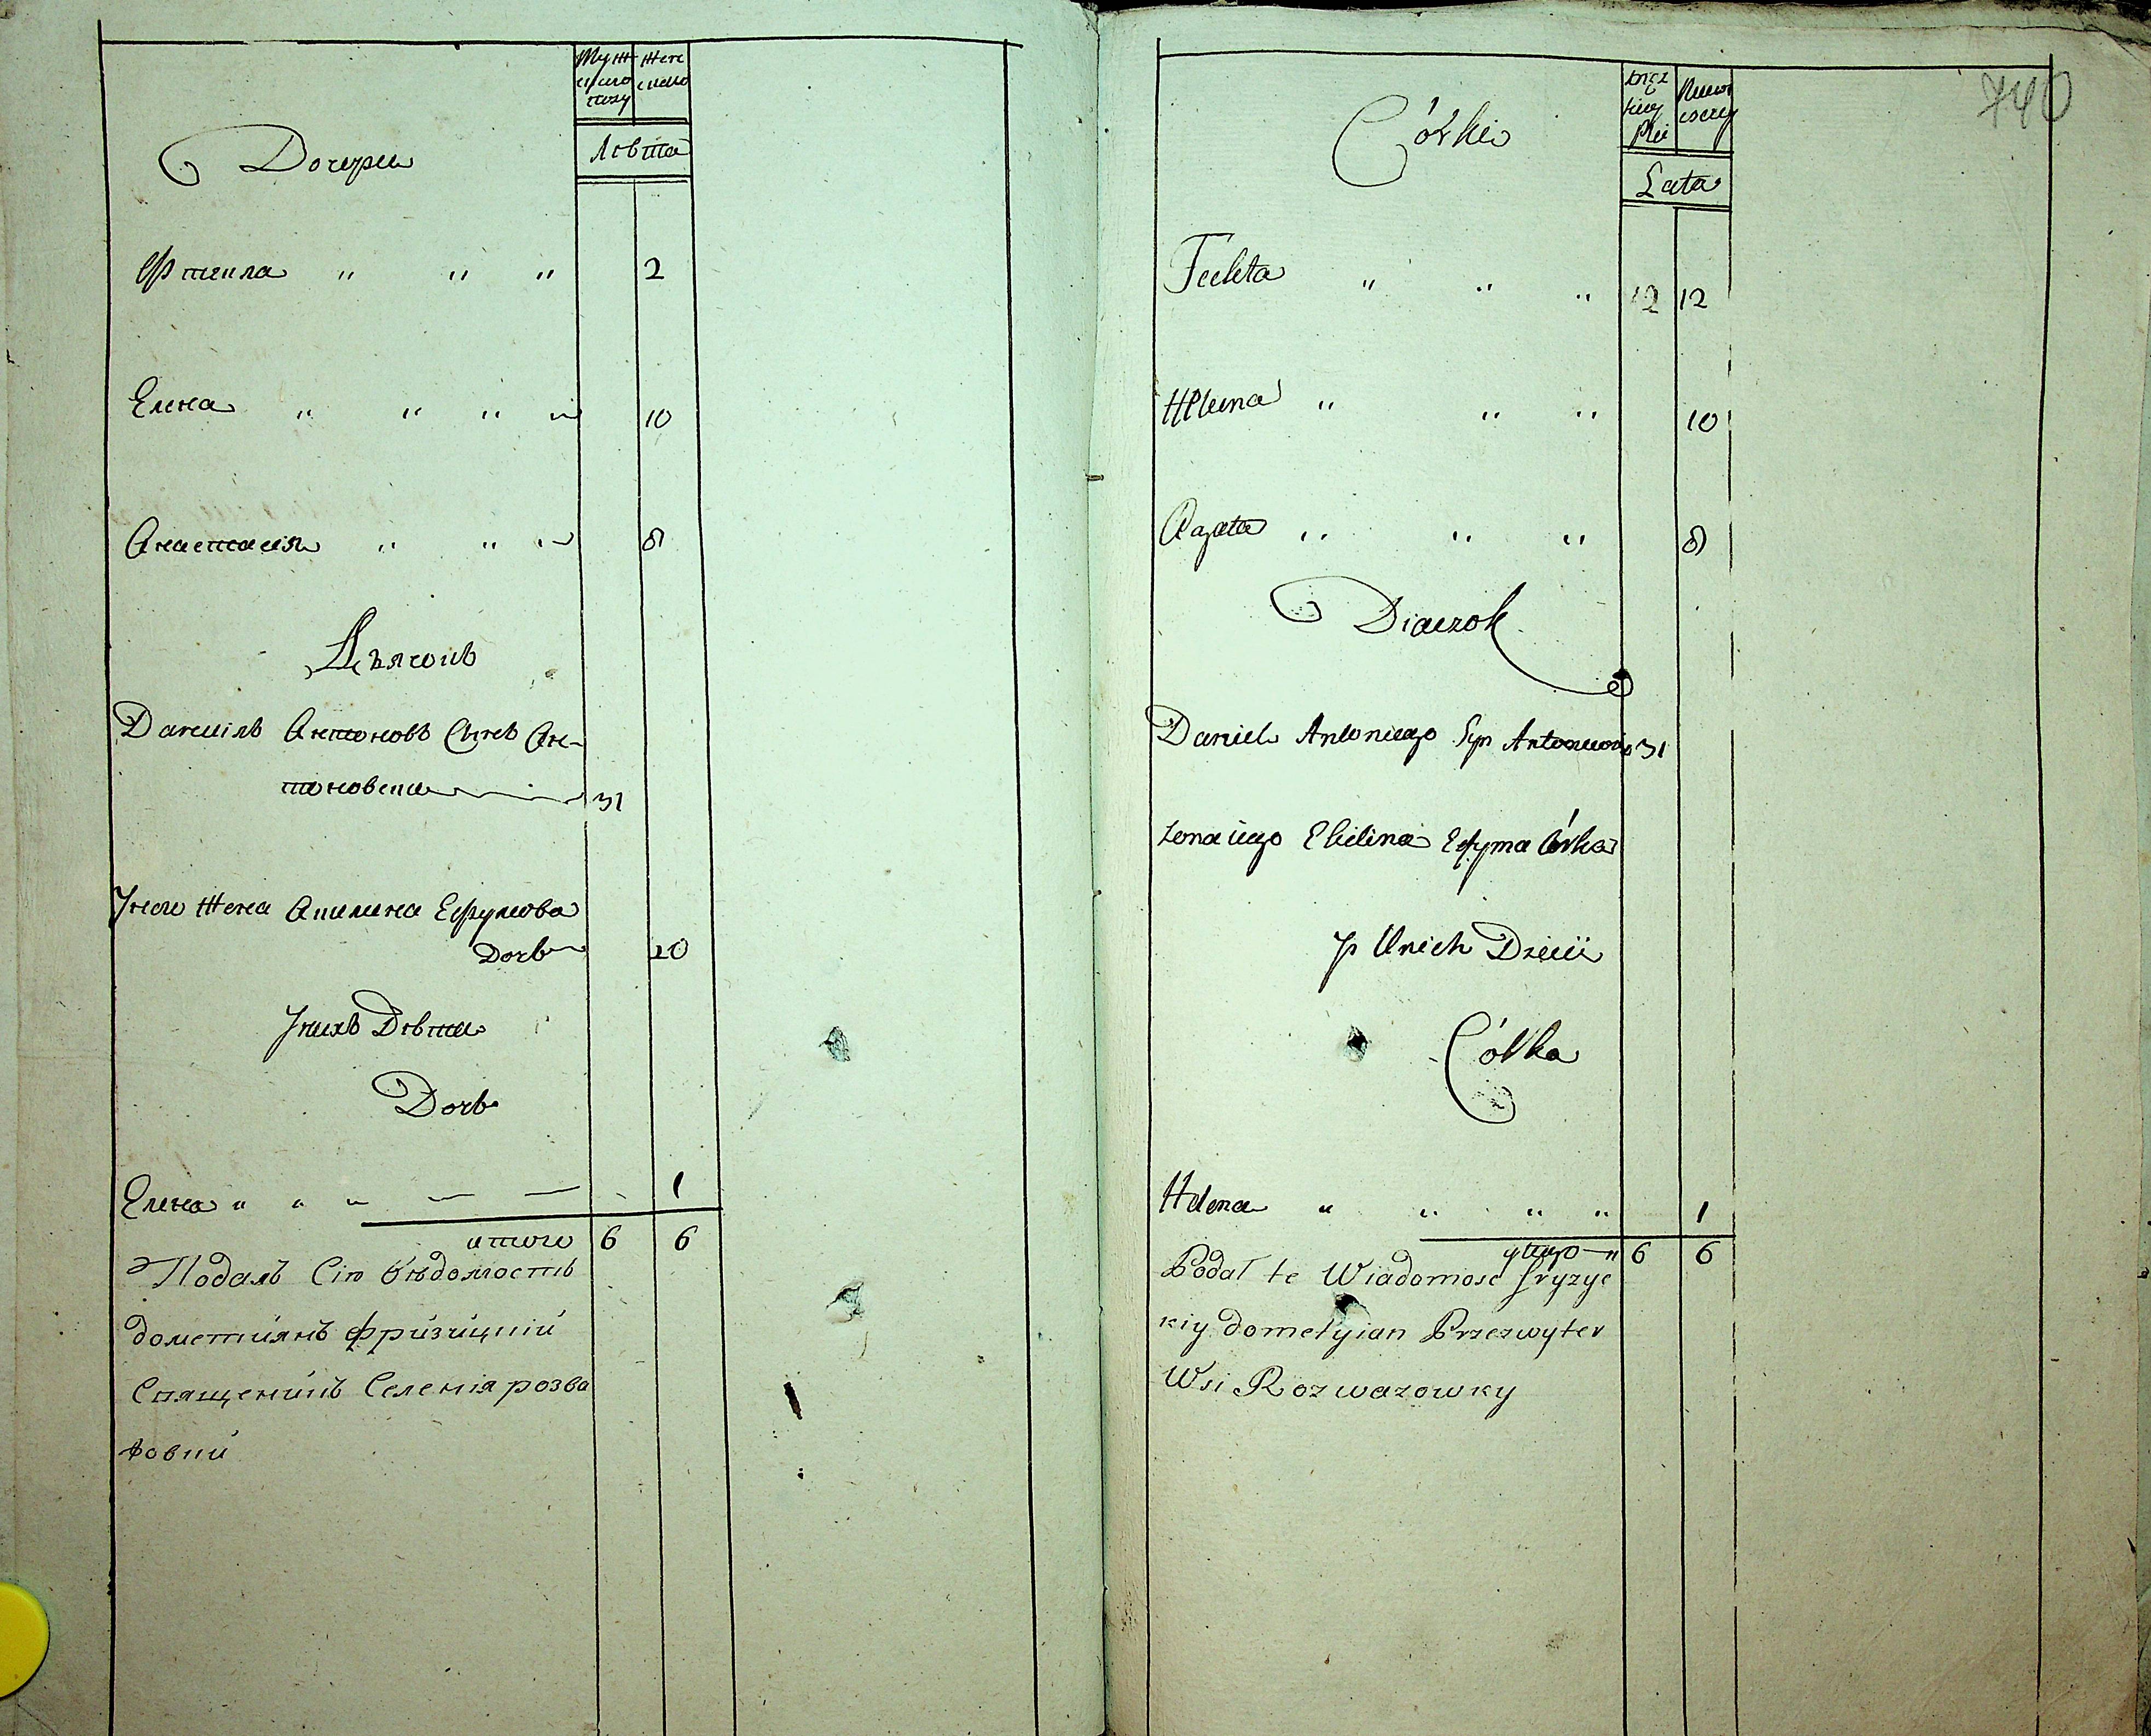 Муж Жен
ского ского
полу
Лѣта
Дочери
2
Елена " " " "
10
Анастасія " " "
8
Дьячокъ
Даніилъ Антоновъ Сынъ Ан-
тоновичь
31
Унего Жена Акилина Ефумова
Дочь
20
Унихъ Дѣти
Дочь
Елена " " "
1
итого 6 6
Подалъ Сію вѣдомость
дометиянъ фризицкій
Священикъ Селенія розва
жовки
740
Męz
kiey
Płci
Lata
Córki
Teckta " " "
12 12
Helena " " "
10
Agata " " "
8
Diaczok
Daniel Antoniego Syn Antonowicz 31
żona iego Ekilina Efyma Córka
y Unich Dzieci
Córka
Helena " " " "
1
ytago " 6 6
Podał te Wiadomosc fryzyc
kiy dometyian Przezwyter
Wsi Rozwazowky